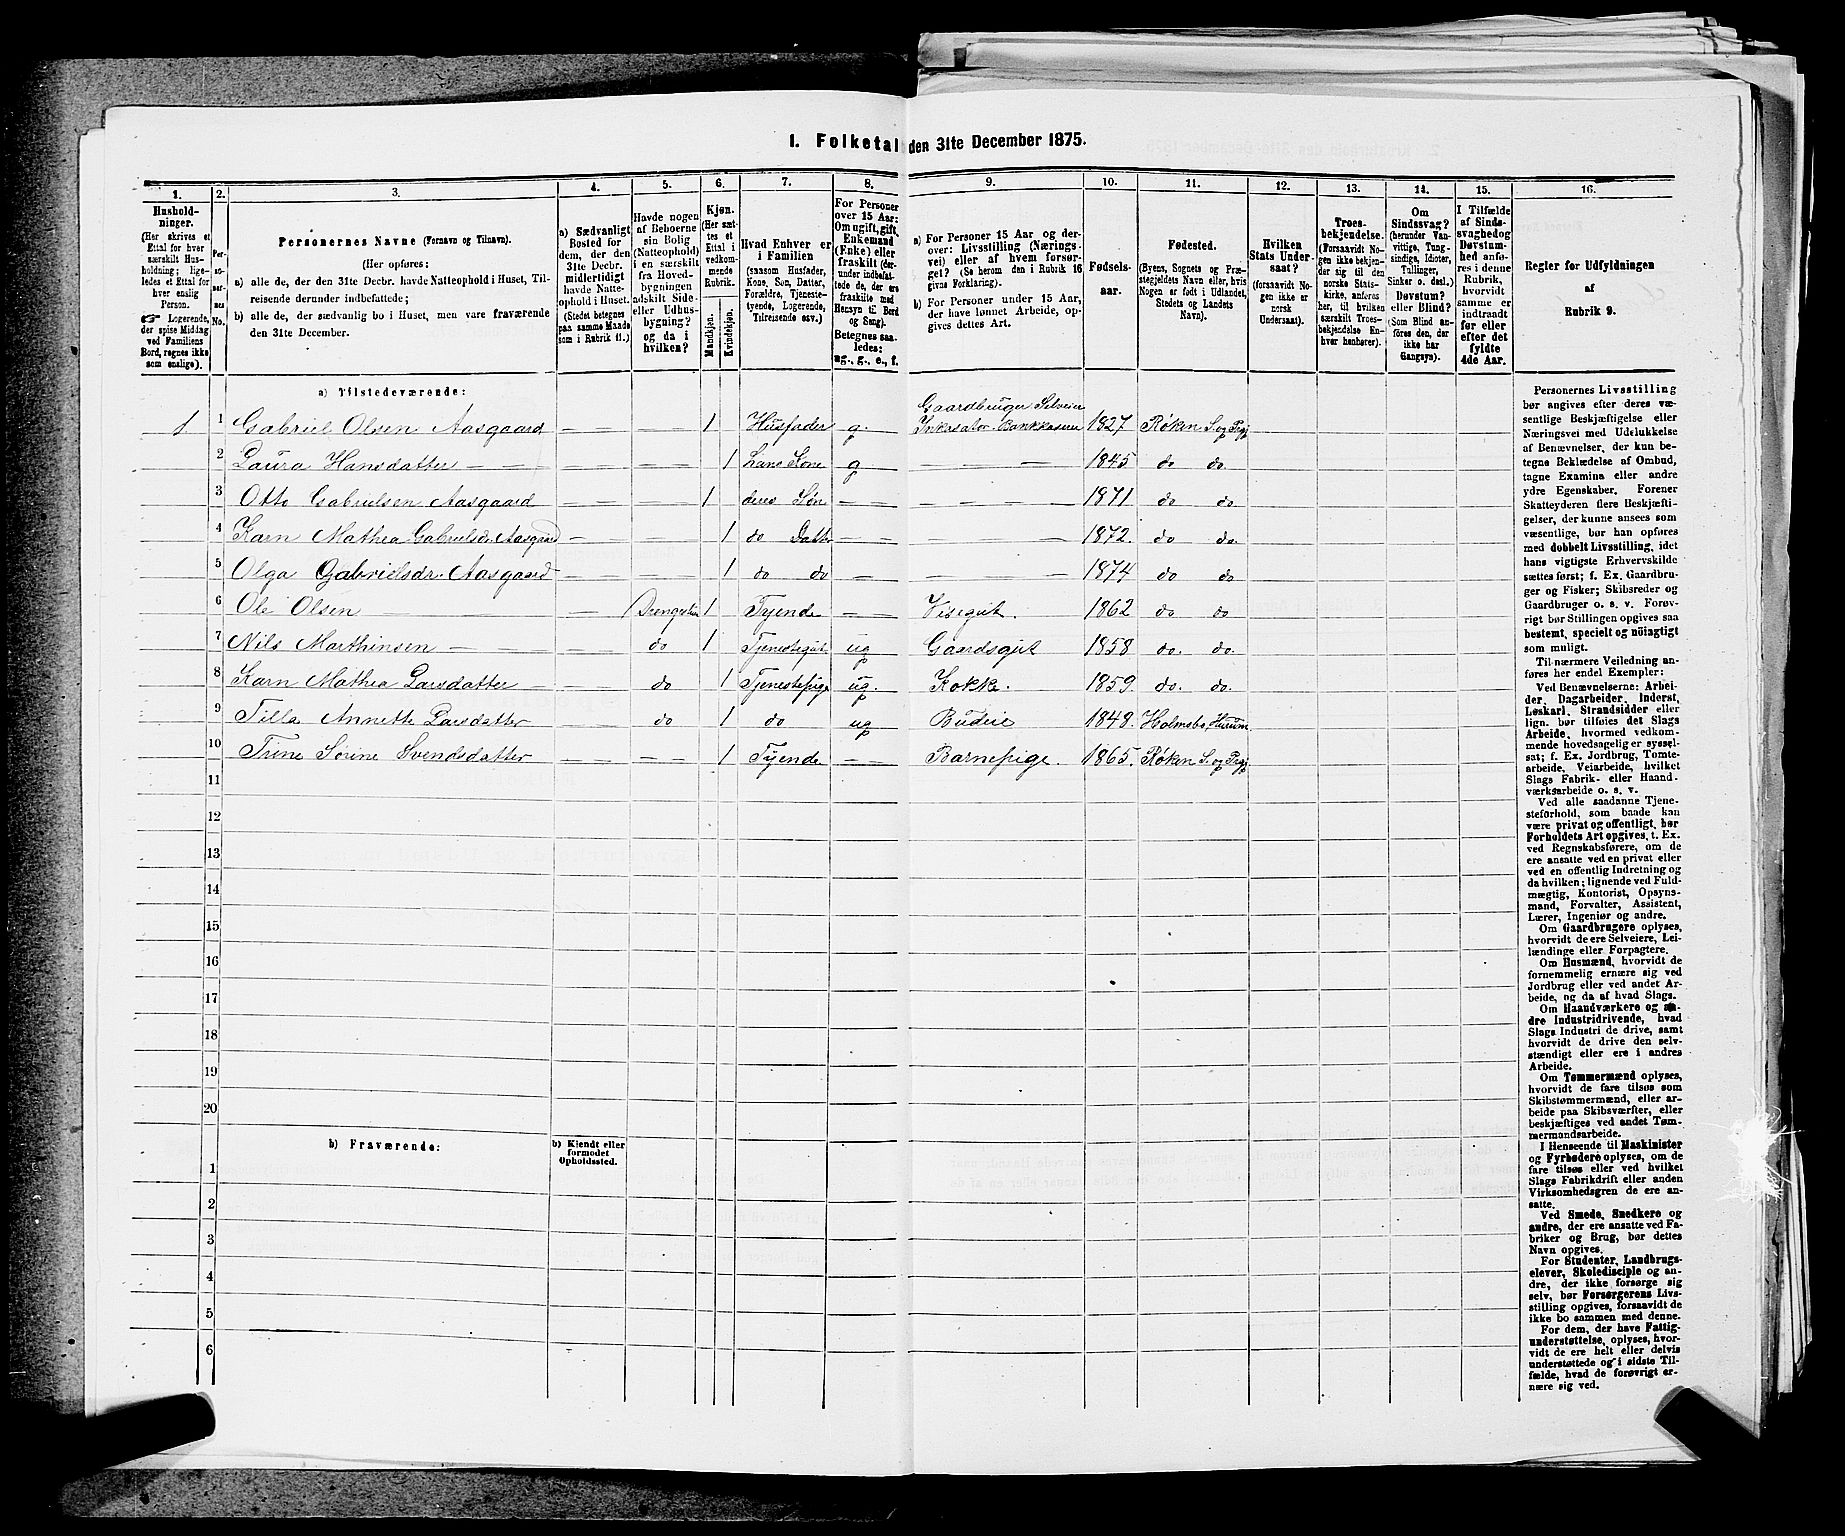 1. Folketal den 31te December 1875.
1. 2. 3. 4. 5. 6. 7. 8. 9. 10. 11. 12. 13. 14. 15. 16.
Hushold-
ninger.
(Her skrives et
Ettal for hver
særskilt Hus-
holdning; lige-
ledes et Ettal for
hver enslig
Person.
☞ Logerende,
der spise Middag
ved Familiens
Bord, regnes ikke
som enslige).
Per-
so-
ner-
nes
No.
Personernes Navne (Fornavn og Tilnavn).
(Her opføres:
a) alle de, der den 31te Decbr. havde Natteophold i Huset, Til-
reisende derunder indbefattede;
b) alle de, der sædvanlig bo i Huset, men vare fraværende
den 31te December.
a) Sædvanligt
Bosted for
dem, der den
31te Decbr.
midlertidigt
havde Natte-
ophold i Huset.
(Stedet betegnes
paa samme Maade
som i Rubrik 11.)
Havde nogen
af Beboerne
sin Bolig
(Natteophold)
i en særskilt
fra Hoved-
bygningen
adskilt Side-
eller Udhus-
bygning?
og da i
hvilken?
Kjøn.
(Her sæt-
tes et
Ettal i
vedkom-
mende
Rubrik.
Mandkjøn.
Kvindekjøn.
Hvad Enhver er
i Familien
(saasom Husfader,
Kone, Søn, Datter,
Forældre, Tjeneste-
tyende, Logerende,
Tilreisende osv.)
For Personer
over 15 Aar:
Om ugift, gift,
Enkemand
(Enke) eller
fraskilt (der-
under indbefat-
tede de, der ere
fraskilte med
Hensyn til Bord
og Seng).
Betegnes saa-
ledes:
ug., g., e., f.
a) For Personer 15 Aar og der-
over: Livsstilling (Nærings-
vei) eller af hvem forsør-
get? (Se herom den i Rubrik 16
givne Forklaring).
b) For Personer under 15 Aar,
der have lønnet Arbeide, op-
gives dettes Art.
Fødsels-
aar.
Fødested.
(Byens, Sognets og Præ-
stegjeldets Navn eller, hvis
Nogen er født i Udlandet,
Stedets og Landets
Navn).
Hvilken
Stats Under-
saat?
(forsaavidt No-
gen ikke er
norsk
Undersaat).
Troes-
bekjendelse.
(Forsaavidt No-
gen ikke bekjen-
der sig til den
norske Stats-
kirke, anføres
her, til hvilken
særskilt Troes-
bekjendelse En-
hver henhører).
Om
Sindssvag?
(herunder Van-
vittige, Tung-
sindige, Idioter,
Tullinger,
Sinker o. desl.)
Døvstum?
eller Blind?
(Som Blind an-
føres den, der
ikke har
Gangsyn).
I Tilfælde
af Sinds-
svaghed og
Døvstum-
hed anfø-
res i denne
Rubrik,
hvorvidt
samme er
indtraadt
før eller
efter det
fyldte
4de Aar.
Regler for Udfyldningen
af
Rubrik 9.
a) Tilstedeværende:
1 1 Gabriel Olsen Aasgaard — — 1 Husfader g. Gaardbruger Selveier
Inkasator Bankkasserer 1827 Røken S. og Prgj
2 Laura Hansdatter — — — — 1 hans Kone g — — 1845 do do
3 Otto Gabrielsen Aasgaard — — 1 deres Søn — — — 1871 do do
4 Karn Mathea Gabrielsdr. Aasgaard — — 1 do Datter — — — 1872 do do
5 Olga Gabrielsdr. Aasgaard — — 1 do do — — — 1874 do do
6 Ole Olsen — — Drengestuen 1 Tyende — Visegut. 1862 do do
7 Nils Marthinsen — — do 1 Tjenestegut ug Gaardsgut 1858 do. do.
8 Karn Mathea Larsdatter — do 1 Tjenestepige ug. Kokke. 1859. do. do.
9 Tilla Annette Larsdatter — do 1 do ug Budeie 1848. Holmsbo, Hurum
10 Trine Sørine Svendsdatter 1 Tyende — Barnepige. 1865. Røken S. og Prgj
11
12
13
14
15
16
17
18
19
20
b) Fraværende:
b) Kjendt eller
formodet
Opholdssted.
1
2
3
4
5
6
Personernes Livsstilling
bør angives efter deres væ-
sentlige Beskjæftigelse eller
Næringsvei med Udelukkelse
af Benævnelser, der kun be-
tegne Beklædelse af Ombud,
tagne Examina eller andre
ydre Egenskaber. Forener
Skatteyderen flere Beskjæfti-
gelser, der kunne ansees som
væsentlige, bør han opføres
med dobbelt Livsstilling, idet
hans vigtigste Erhvervskilde
sættes først; f. Ex. Gaardbru-
ger og Fisker; Skibsreder og
Gaardbruger o. s. v. Forøv-
rigt bør Stillingen opgives saa
bestemt, specielt og nöiagtigt
som muligt.
Til nærmere Veiledning an-
føres her endel Exempler:
Ved Benævnelserne: Arbei-
der, Dagarbeider, Inderst,
Løskarl, Strandsidder eller
lign. bør tilføies det Slags
Arbeide, hvormed vedkom-
mende hovedsagelig er syssel-
sat; f. Ex. Jordbrug, Tomte-
arbeide, Veiarbeide, hvilket
Slags Fabrik- eller Haand-
værksarbeide o. s. v.
Ved alle saadanne Tjene-
steforhold, som baade kan
være privat og offentligt, bør
Forholdets Art opgives, t. Ex.
ved Regnskabsførere, om de
ere ansatte ved en privat eller
ved en offentlig Indretning og
da hvilken; lignende ved Fuld-
mægtig, Kontorist, Opsyns-
mand, Forvalter, Assistent,
Lærer, Ingeniør og andre.
Om Gaardbrugere oplyses,
hvorvidt de ere Selveiere, Lei-
lændinge eller Forpagtere.
Om Husmænd, hvorvidt de
fornemmelig ernære sig ved
Jordbrug eller ved andet Ar-
beide, og da af hvad Slags.
Om Haandværkere og an-
dre Industridrivende, hvad
Slags Industri de drive, samt
hvorvidt de drive den selv-
stændigt eller ere i andres
Arbeide.
Om Tømmermænd oplyses,
hvorvidt de fare tilsøs som
Skibstømmermænd, eller ar-
beide paa Skibsværfter, eller
beskjæftiges ved andet Tøm-
mermandsarbeide.
I Henseende til Maskinister
og Fyrbødere oplyses, om de
fare tilsøs eller ved hvilket
Slags Fabrikdrift eller anden
Virksomhedsgren de ere an-
satte.
Ved Smede, Snedkere og
andre, der ere ansatte ved Fa-
briker og Brug, bør dettes
Navn opgives.
For Studenter, Landbrugs-
elever, Skoledisciple og an-
dre, der ikke forsørge sig
selv, bør Forsørgerens Livs-
stilling opgives, forsaavidt de
ikke bo sammen med denne.
For dem, der have Fattig-
understøttelse, oplyses, hvor-
vidt de ere helt eller delvis
understøttede og i sidste Til-
fælde, hvad de forøvrigt er-
nære sig ved.